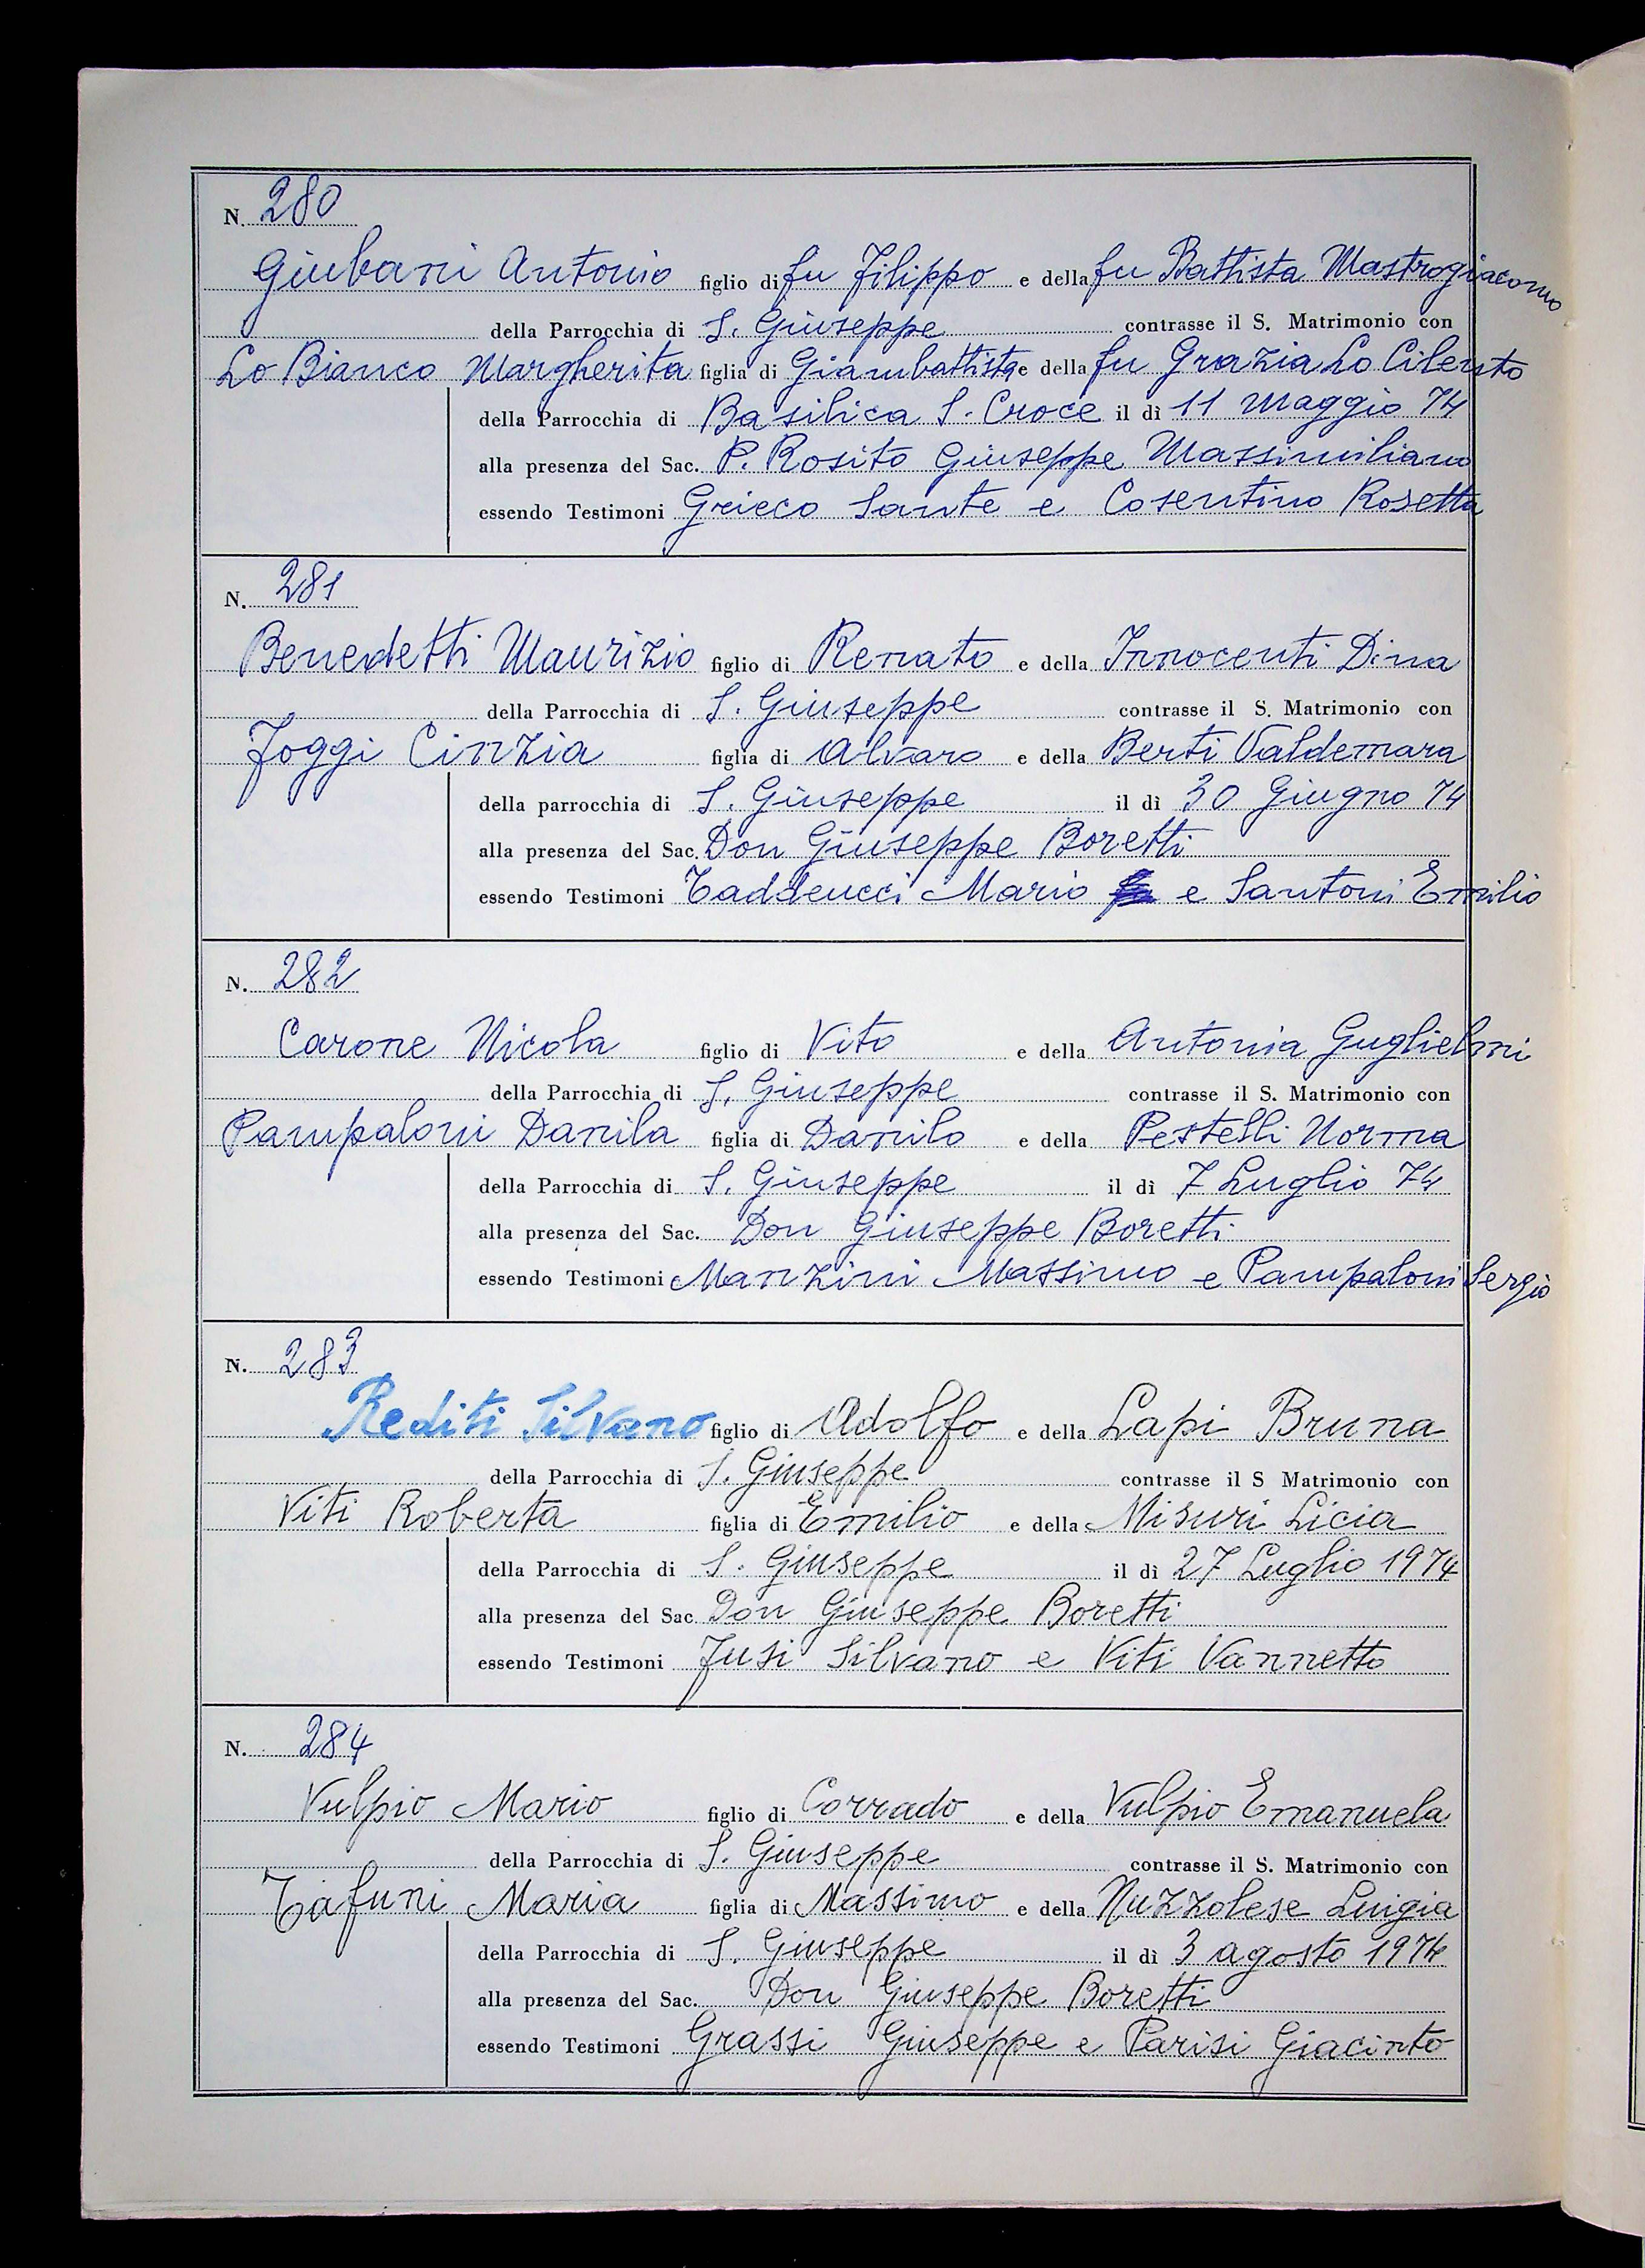 N. 280
Giubani Antonio figlio di fu Filippo e della fu Battista Mastrogiacomo
della Parrocchia di S. Giuseppe contrasse il S. Matrimonio con
Lo Bianco Margherita figlia di Giambattista e della fu Grazia Lo Cilento
della Parrocchia di Basilica S. Croce il dì 11 Maggio 74
alla presenza del Sac. P. Rosito Giuseppe Massimiliano
essendo Testimoni Grieco Sante e Cosentino Rosetta
N. 281
Benedetti Maurizio figlio di Renato e della Innocenti Dina
della Parrocchia di S. Giuseppe contrasse il S. Matrimonio con
Foggi Cinzia figlia di Alvaro e della Berti Valdemara
della parrocchia di S. Giuseppe il dì 30 Giugno 74
alla presenza del Sac. Don Giuseppe Boretti
essendo Testimoni Taddeucci Mario e Santoni Emilio
N. 282
Carone Nicola figlio di Vito e della Antonia Guglielmi
della Parrocchia di S. Giuseppe contrasse il S. Matrimonio con
Pampaloni Danila figlia di Danilo e della Pestelli Norma
della Parrocchia di S. Giuseppe il dì 7 Luglio 74
alla presenza del Sac. Don Giuseppe Boretti
essendo Testimoni Manzini Massimo e Pampaloni Sergio
N. 283
Rediti Silvano figlio di Adolfo e della Lapi Bruna
della Parrocchia di S. Giuseppe contrasse il S Matrimonio con
Viti Roberta figlia di Emilio e della Misuri Licia
della Parrocchia di S. Giuseppe il dì 27 Luglio 1974
alla presenza del Sac Don Giuseppe Boretti
essendo Testimoni Fusi Silvano e Viti Vannetto
N. 284
Vulpio Mario figlio di Corrado e della Vulpio Emanuela
della Parrocchia di S. Giuseppe contrasse il S. Matrimonio con
Tafuni Maria figlia di Massimo e della Nuzzolese Luigia
della Parrocchia di S. Giuseppe il dì 3 agosto 1974
alla presenza del Sac. Don Giuseppe Boretti
essendo Testimoni Grassi Giuseppe e Parisi Giacinto